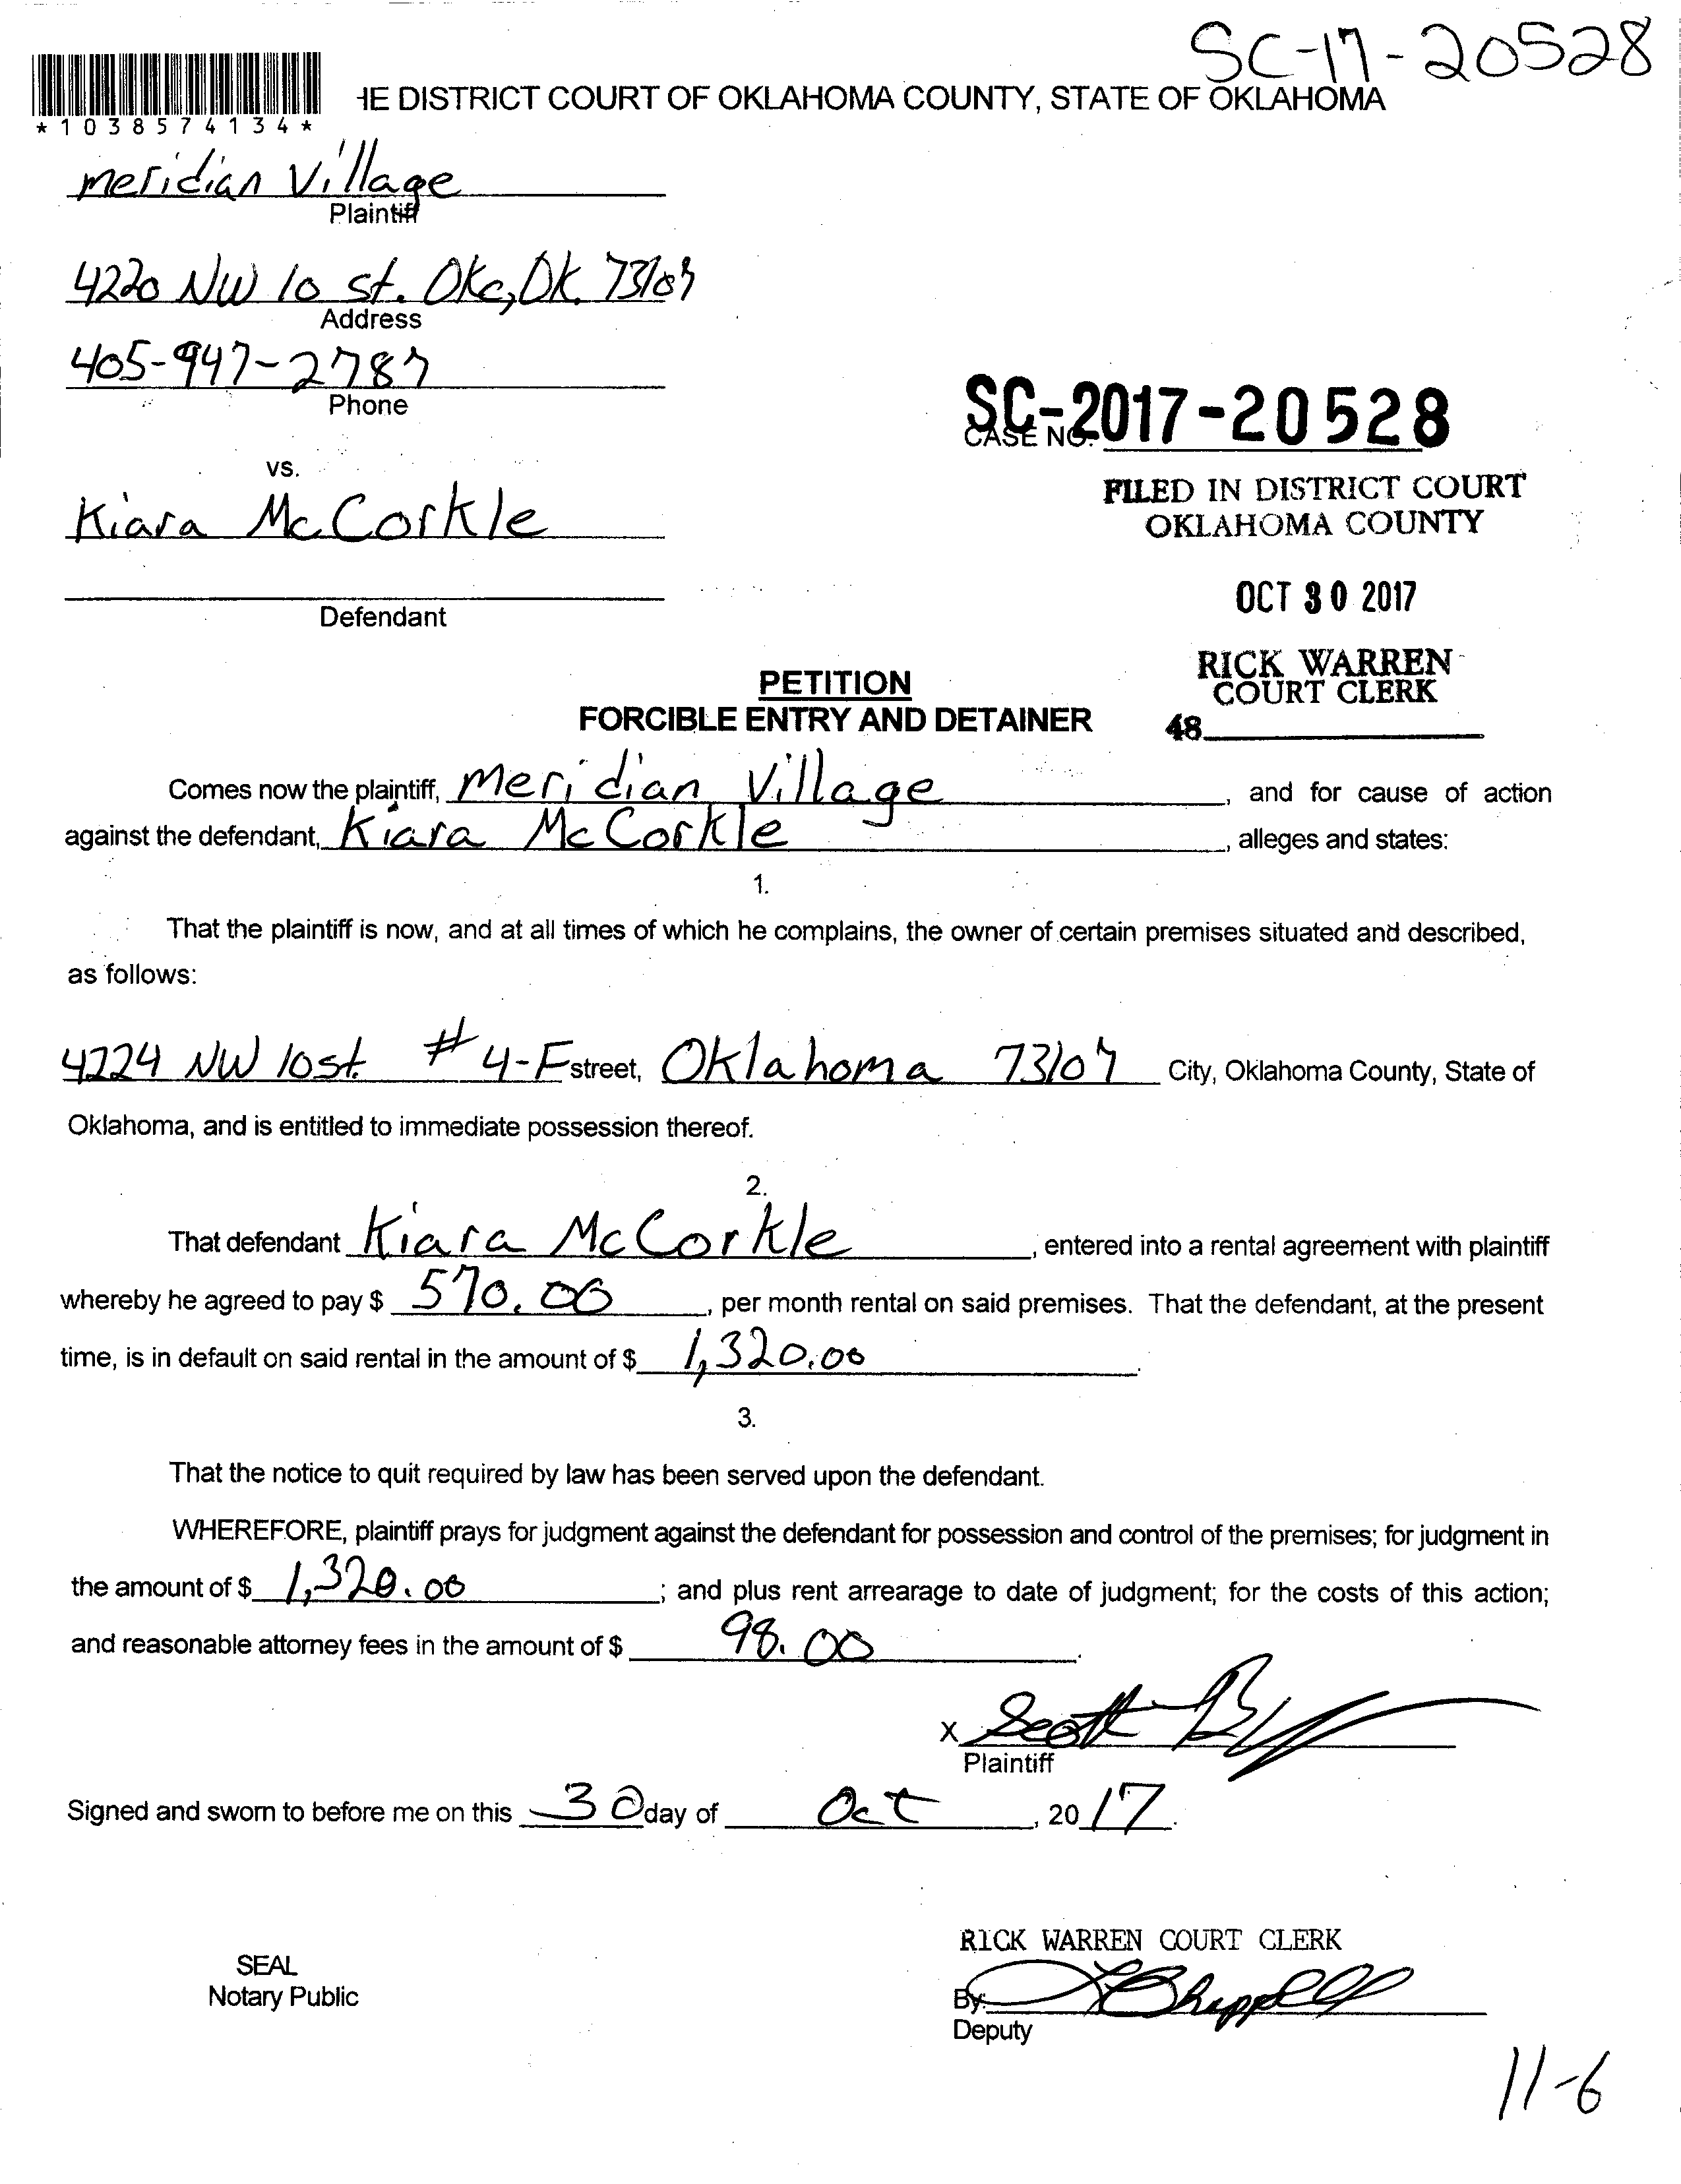 SC-17-20528
*1038574134*
HE DISTRICT COURT OF OKLAHOMA COUNTY, STATE OF OKLAHOMA
Meridian Village
Plaintiff
4220 NW 10 st. Okc, OK. 73107
Address
405-947-2787
Phone
SC-2017-20528
CASE NO.
FILED IN DISTRICT COURT
OKLAHOMA COUNTY
vs.
Kiara McCorkle
Defendant
OCT 30 2017
RICK WARREN
COURT CLERK
48
PETITION
FORCIBLE ENTRY AND DETAINER
Comes now the plaintiff, Meridian Village, and for cause of action
against the defendant, Kiara McCorkle, alleges and states:
1.
That the plaintiff is now, and at all times of which he complains, the owner of certain premises situated and described,
as follows:
4224 NW 10 st. # 4-F street, Oklahoma 73107 City, Oklahoma County, State of
Oklahoma, and is entitled to immediate possession thereof.
2.
That defendant Kiara McCorkle, entered into a rental agreement with plaintiff
whereby he agreed to pay $ 570.00, per month rental on said premises. That the defendant, at the present
time, is in default on said rental in the amount of $ 1,320.00.
3.
That the notice to quit required by law has been served upon the defendant.
WHEREFORE, plaintiff prays for judgment against the defendant for possession and control of the premises; for judgment in
the amount of $ 1,320.00; and plus rent arrearage to date of judgment; for the costs of this action;
and reasonable attorney fees in the amount of $ 98.00.
X Scott
Plaintiff
Signed and sworn to before me on this 30 day of Oct, 20 17.
RICK WARREN COURT CLERK
SEAL
Notary Public
By: Chappell
Deputy
11-6